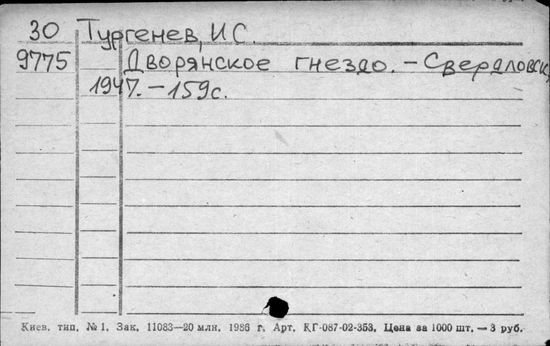 30 Тургенев, И.С.
9775 Дворянское гнездо. – Свердловск,
1947. – 159с.
Киев. тип. № 1. Зак. 11083—20 млн. 1986 г. Арт. КГ-087-02-353. Цена за 1000 шт. — 3 руб.